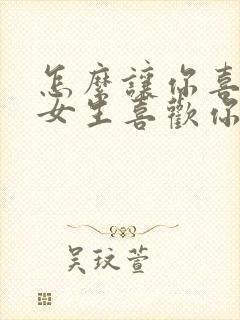 怎麽讓你喜
女生喜歡你
吴玟萱